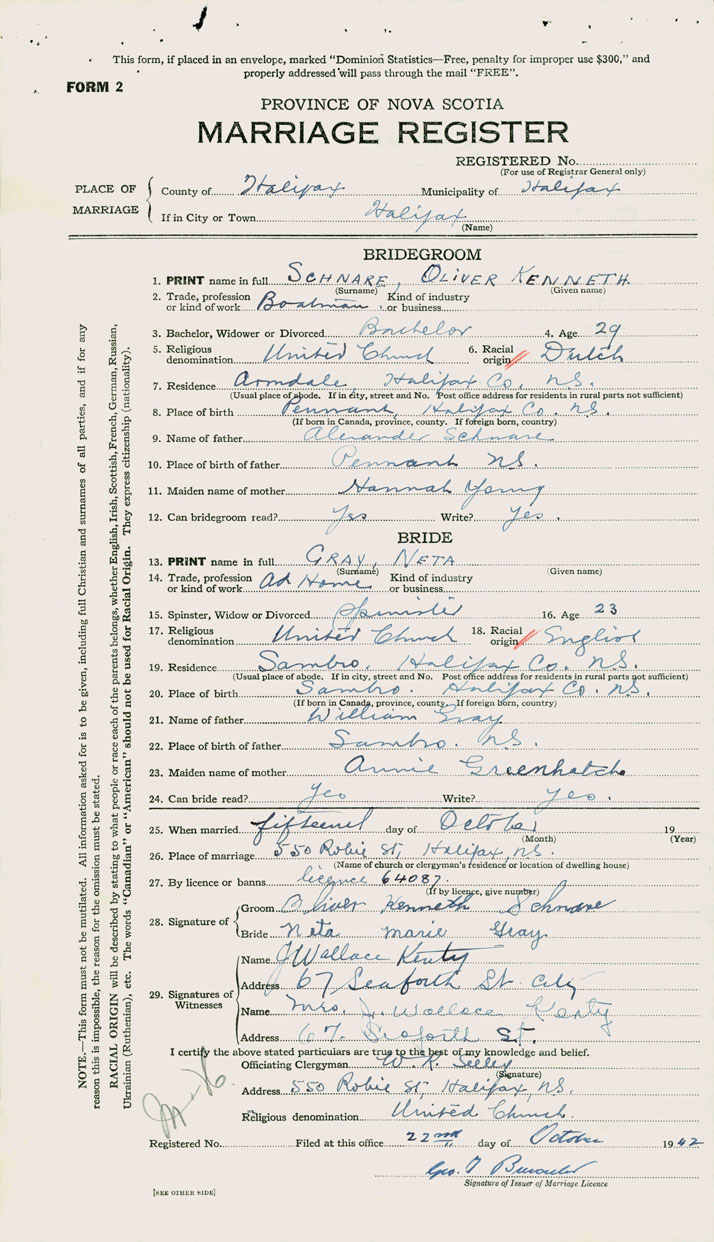 This form, if placed in an envelope, marked "Dominion Statistics—Free, penalty for improper use $300," and
properly addressed will pass through the mail "FREE".
FORM 2
PROVINCE OF NOVA SCOTIA
MARRIAGE REGISTER
REGISTERED No.
(For use of Registrar General only)
PLACE OF MARRIAGE
County of Halifax Municipality of Halifax
If in City or Town Halifax
(Name)
BRIDEGROOM
1. PRINT name in full SCHNARE, OLIVER KENNETH
(Surname) (Given name)
2. Trade, profession or kind of work Boatman Kind of industry or business
3. Bachelor, Widower or Divorced Bachelor 4. Age 29
5. Religious denomination United Church 6. Racial origin Dutch
7. Residence Armdale, Halifax Co. N.S.
(Usual place of abode. If in city, street and No. Post office address for residents in rural parts not sufficient)
8. Place of birth Pennant, Halifax Co. N.S.
(If born in Canada, province, county. If foreign born, country)
9. Name of father Alexander Schnare
10. Place of birth of father Pennant N.S.
11. Maiden name of mother Hannah Young
12. Can bridegroom read? Yes Write? Yes.
BRIDE
13. PRINT name in full GRAY, NETA
(Surname) (Given name)
14. Trade, profession or kind of work At Home Kind of industry or business
15. Spinster, Widow or Divorced Spinster 16. Age 23
17. Religious denomination United Church 18. Racial origin English
19. Residence Sambro. Halifax Co. N.S.
(Usual place of abode. If in city, street and No. Post office address for residents in rural parts not sufficient)
20. Place of birth Sambro. Halifax Co. N.S.
(If born in Canada, province, county. If foreign born, country)
21. Name of father William Gray
22. Place of birth of father Sambro. N.S.
23. Maiden name of mother Annie Greenhatch
24. Can bride read? Yes Write? Yes.
25. When married fifteenth day of October 19
(Month) (Year)
26. Place of marriage 550 Robie St, Halifax, N.S.
(Name of church or clergyman's residence or location of dwelling house)
27. By licence or banns licence 64087.
(If by licence, give number)
28. Signature of
Groom Oliver Kenneth Schnare
Bride Neta Marie Gray
29. Signatures of Witnesses
Name J Wallace Kenty
Address 67 Seaforth St. City
Name Mrs. J. Wallace Kenty
Address 67 Seaforth St.
I certify the above stated particulars are true to the best of my knowledge and belief.
Officiating Clergyman W. K. Seeley
(Signature)
Address 550 Robie St, Halifax, N.S.
Religious denomination United Church
Registered No. Filed at this office 22nd day of October 1942
Geo. T
Signature of Issuer of Marriage Licence
[SEE OTHER SIDE]
NOTE.—This form must not be mutilated. All information asked for is to be given, including full Christian and surnames of all parties, and if for any
reason this is impossible, the reason for the omission must be stated.
RACIAL ORIGIN will be described by stating to what people or race each of the parents belongs, whether English, Irish, Scottish, French, German, Russian,
Ukrainian (Ruthenian), etc. The words "Canadian" or "American" should not be used for Racial Origin. They express citizenship (nationality).